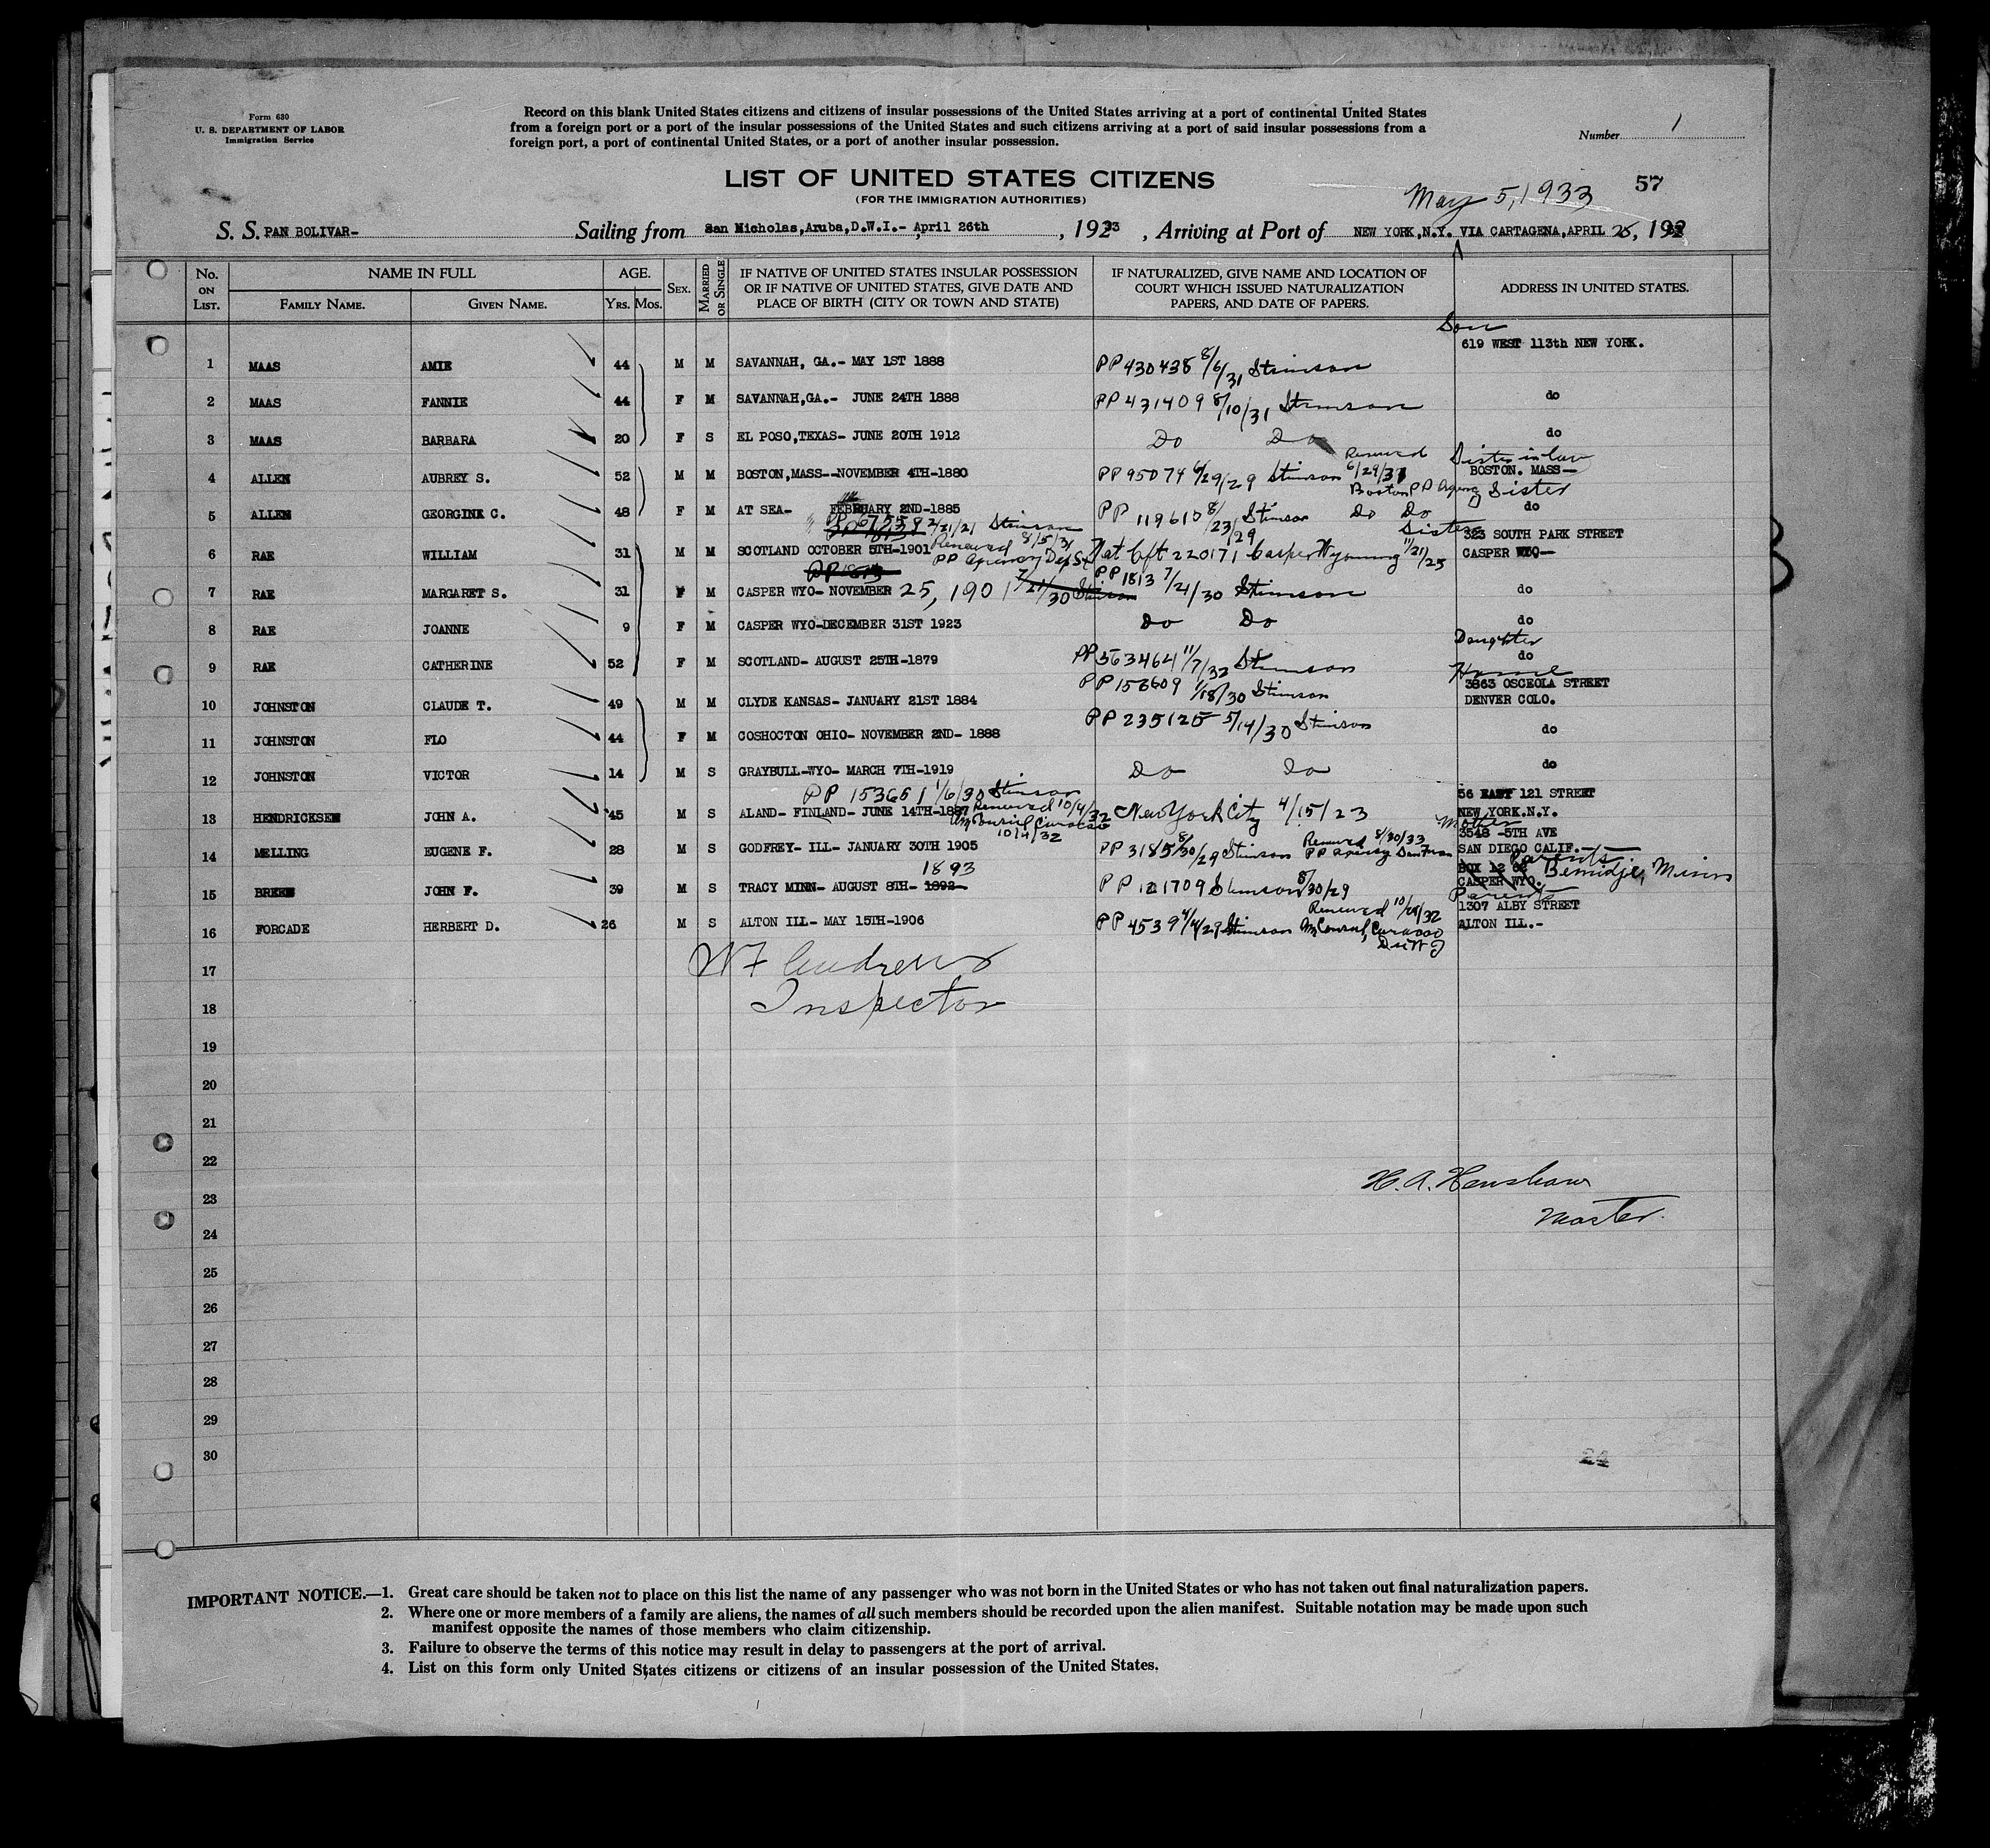 Form 630
U. S. DEPARTMENT OF LABOR
Immigration Service
Record on this blank United States citizens and citizens of insular possessions of the United States arriving at a port of continental United States
from a foreign port or a port of the insular possessions of the United States and such citizens arriving at a port of said insular possessions from a
foreign port, a port of continental United States, or a port of another insular possession.
Number 1
LIST OF UNITED STATES CITIZENS
(FOR THE IMMIGRATION AUTHORITIES)
May 5, 1933 57
S. S. PAN BOLIVAR- Sailing from San Nicholas, Aruba, D.W.I.- April 26th, 1923 33, Arriving at Port of NEW YORK, N.Y. VIA CARTAGENA, APRIL 26, 192
No. ON LIST. NAME IN FULL AGE. SEX. MARRIED OR SINGLE IF NATIVE OF UNITED STATES INSULAR POSSESSION OR IF NATIVE OF UNITED STATES, GIVE DATE AND PLACE OF BIRTH (CITY OR TOWN AND STATE) IF NATURALIZED, GIVE NAME AND LOCATION OF COURT WHICH ISSUED NATURALIZATION PAPERS, AND DATE OF PAPERS. ADDRESS IN UNITED STATES.
FAMILY NAME. GIVEN NAME. YRS. MOS.
Son
619 WEST 113th NEW YORK.
1 MAAS AMIE 44 M M SAVANNAH, GA.- MAY 1ST 1888 PP 430438 8/6/31 Stimson
2 MAAS FANNIE 44 F M SAVANNAH, GA.- JUNE 24TH 1888 PP 431409 8/10/31 Stimson do
3 MAAS BARBARA 20 F S EL POSO, TEXAS- JUNE 20TH 1912 Do Do do
Renewed Sister in law
4 ALLEN AUBREY S. 52 M M BOSTON, MASS--NOVEMBER 4TH-1880 PP 95074 6/29/29 Stimson 6/29/31 BOSTON. MASS-
Boston PP Agency Sister
5 ALLEN GEORGINE C. 48 F M AT SEA- FEBRUARY 2ND-1885 PP 119610 8/23/29 Stimson Do Do do
Stimson Sister
Renewed 8/5/31 323 SOUTH PARK STREET
6 RAE WILLIAM 31 M M SCOTLAND OCTOBER 5TH-1901 PP Agency Nat Cft 220171 Casper Wyoming 11/21/25 CASPER WYO-
7 RAE MARGARET S. 31 F M CASPER WYO- NOVEMBER 25, 1901 7/21/30 Stimson PP 1813 7/21/30 Stimson do
8 RAE JOANNE 9 F M CASPER WYO-DECEMBER 31ST 1923 Do Do do
Daughter
9 RAE CATHERINE 52 F M SCOTLAND- AUGUST 25TH-1879 PP 563464 11/7/32 Stimson do
Home
3863 OSCEOLA STREET
10 JOHNSTON CLAUDE T. 49 M M CLYDE KANSAS- JANUARY 21ST 1884 PP 153609 1/18/30 Stimson DENVER COLO.
11 JOHNSTON FLO 44 F M COSHOCTON OHIO- NOVEMBER 2ND- 1888 PP 235125 5/14/30 Stimson do
12 JOHNSTON VICTOR 14 M S GRAYBULL-WYO- MARCH 7TH-1919 Do Do do
PP 153651 1/6/30 Stimson 56 EAST 121 STREET
13 HENDRICKSEN JOHN A. 45 M S ALAND- FINLAND- JUNE 14TH-1887 Renewed 10/4/32 New York City 4/15/23 NEW YORK.N.Y.
Am Consul Curacao 10/4/32
Mother
3548 -5TH AVE
14 MELLING EUGENE F. 28 M S GODFREY- ILL- JANUARY 30TH 1905 PP 3185 8/30/29 Stimson Renewed 8/30/33 PP Agency San Fran SAN DIEGO CALIF.-
1893 Parents
15 BREEN JOHN F. 39 M S TRACY MINN- AUGUST 8TH- 1892- PP 121709 Stimson 8/30/29 CASPER WYO. Bemidje, Minn
Parents
1307 ALBY STREET
16 FORCADE HERBERT D. 26 M S ALTON ILL- MAY 15TH-1906 PP 4539 4/4/29 Stimson Renewed 10/28/32 Am Consul, Curacao DutWI ALTON ILL.-
17 W F Andrews
18 Inspector
19
20
21
22
23 H. A. Henshaw
24 Master.
25
26
27
28
29
30 24
IMPORTANT NOTICE.—1. Great care should be taken not to place on this list the name of any passenger who was not born in the United States or who has not taken out final naturalization papers.
2. Where one or more members of a family are aliens, the names of all such members should be recorded upon the alien manifest. Suitable notation may be made upon such
manifest opposite the names of those members who claim citizenship.
3. Failure to observe the terms of this notice may result in delay to passengers at the port of arrival.
4. List on this form only United States citizens or citizens of an insular possession of the United States.